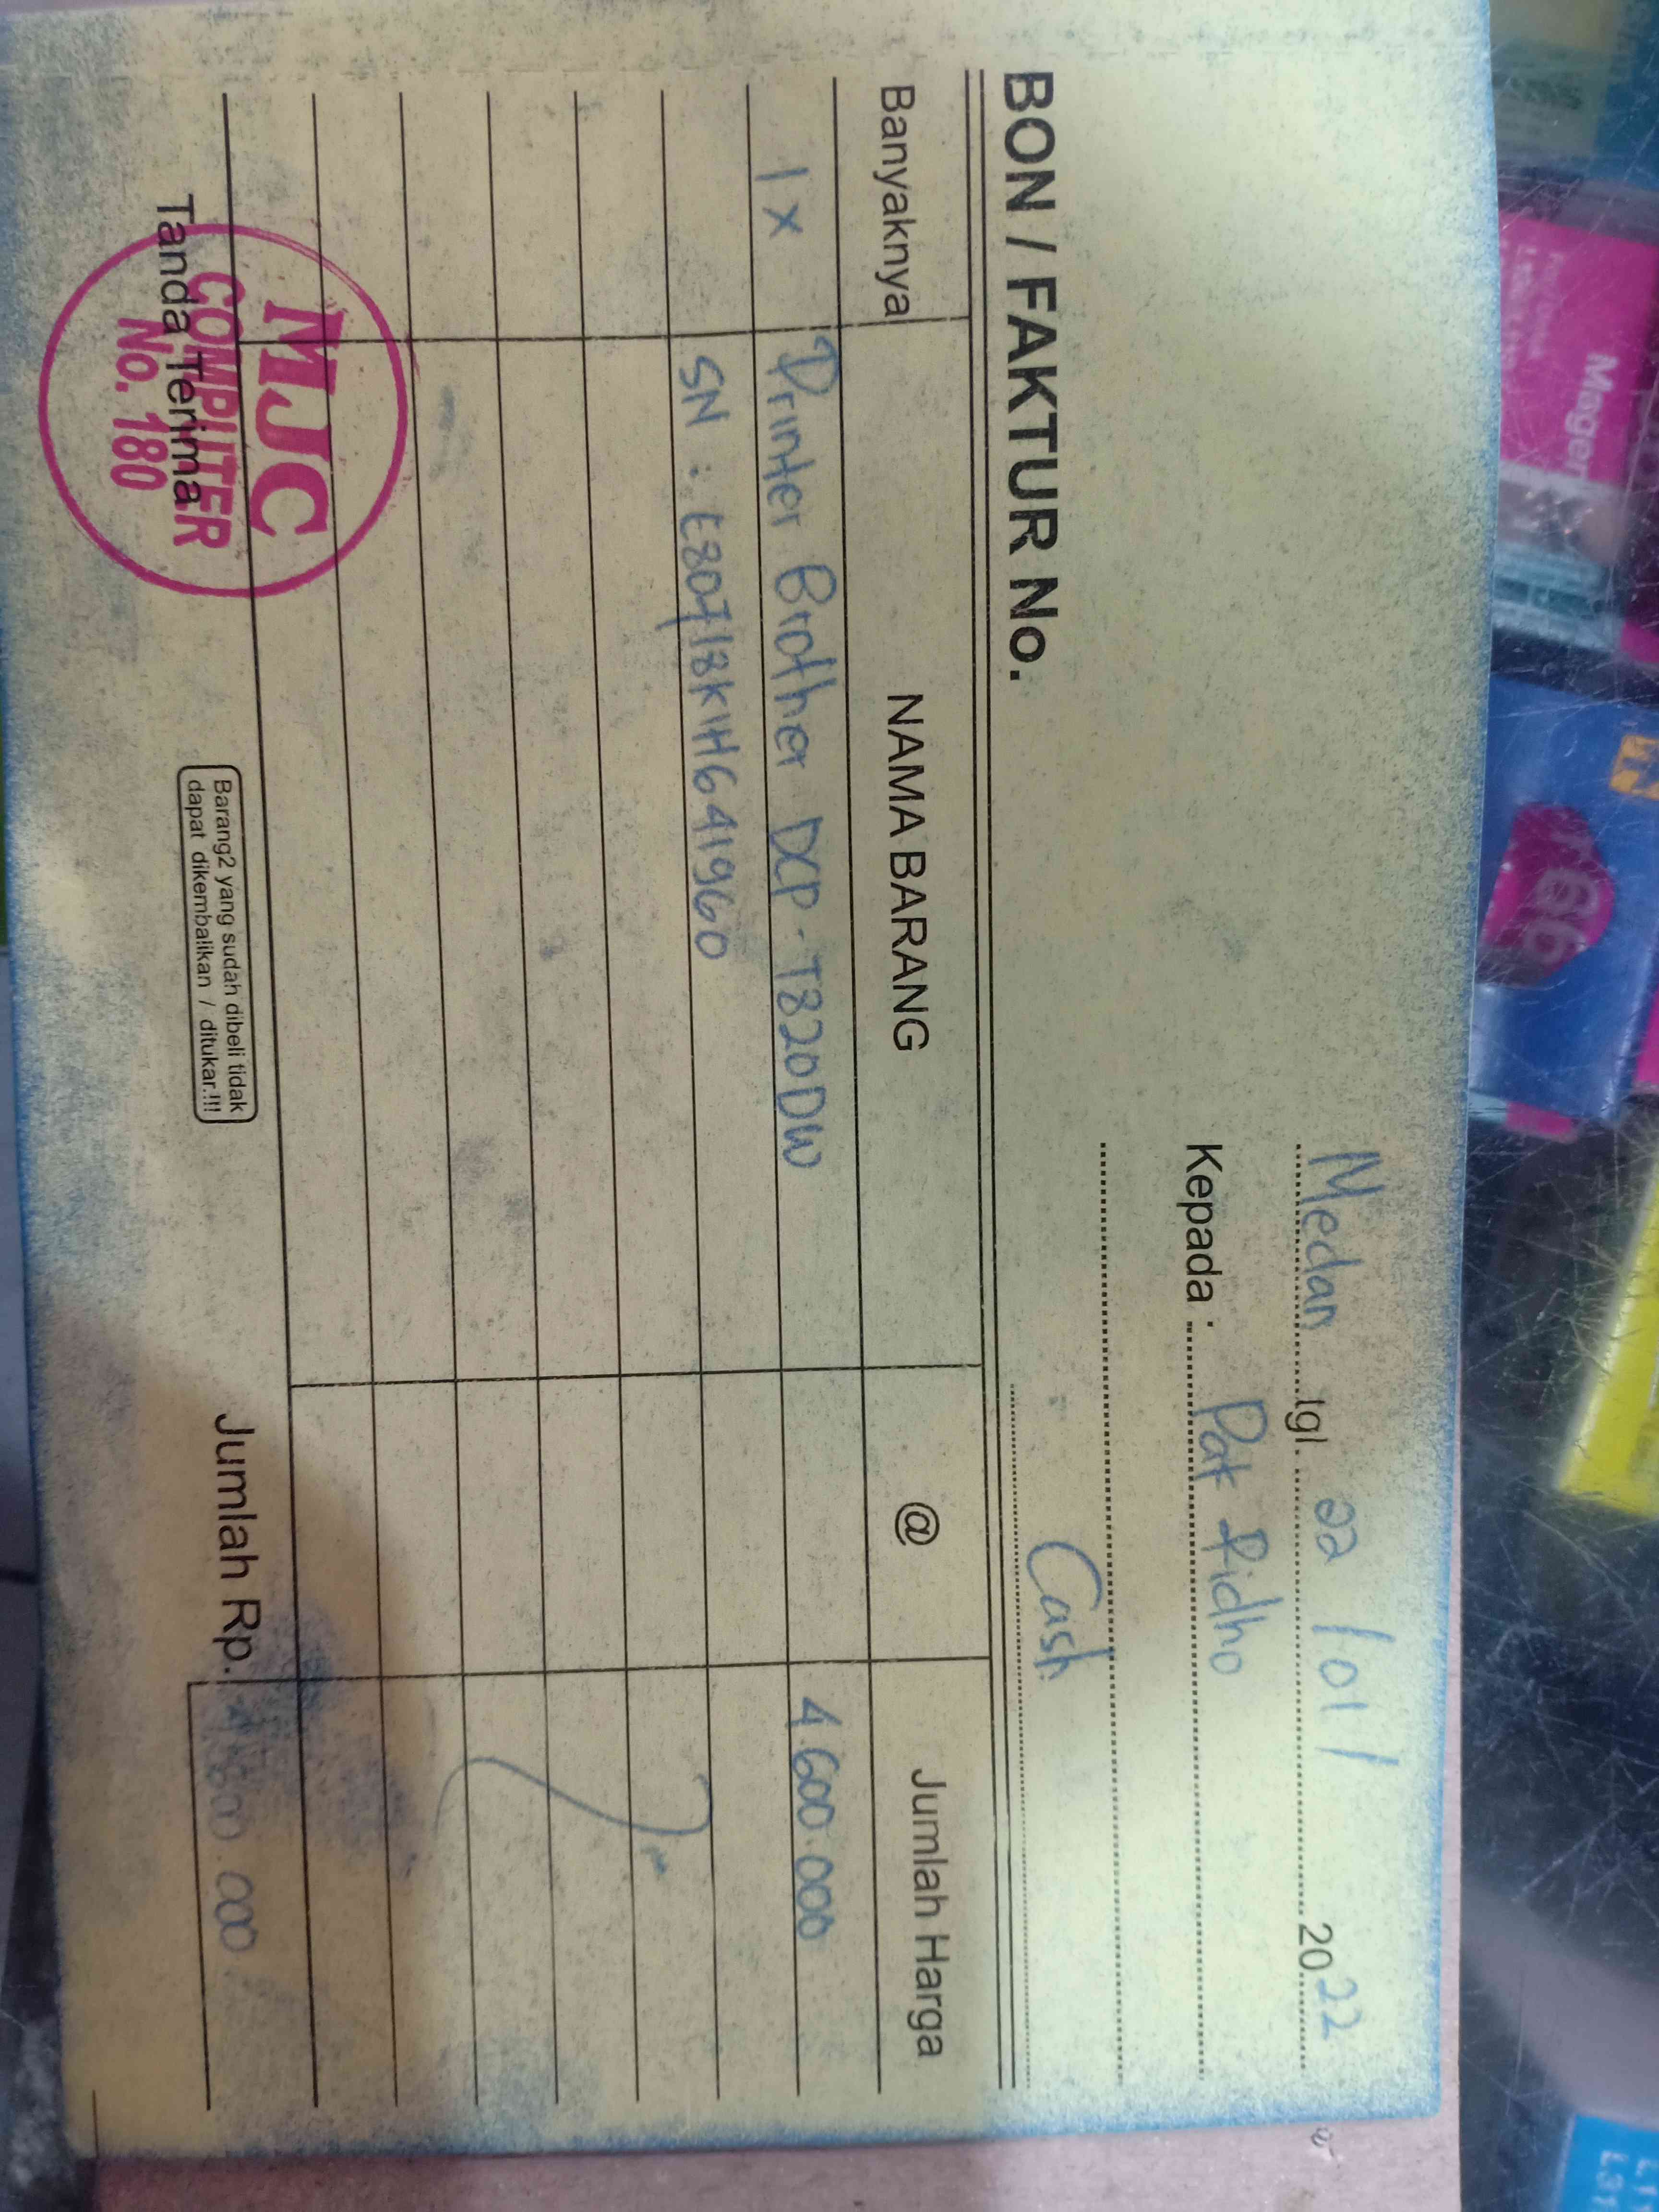 Medan tgl. 22 / 01 / 2022
Kepada : Pak Ridho
Cash
BON / FAKTUR No.
Banyaknya NAMA BARANG @ Jumlah Harga
1 x Printer Brother DCP - T820DW 4.600.000
SN : E80718K1H641960
Jumlah Rp. 4.600.000
Tanda Terima
MJC
COMPUTER
No. 180
Barang2 yang sudah dibeli tidak
dapat dikembalikan / ditukar.!!!